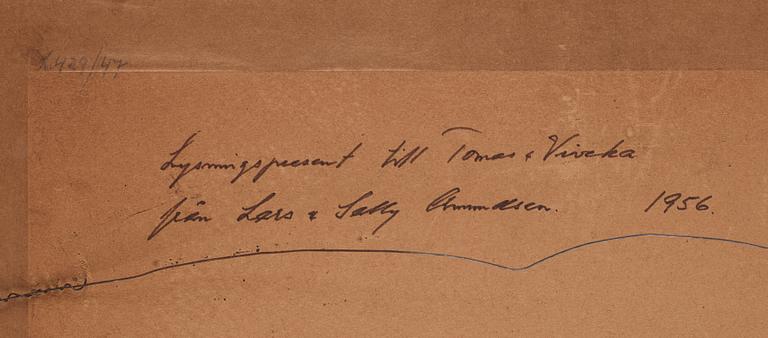 L 429/47
Lysningspresent till Tomas & Viveka
från Lars & Sally Ammundsen. 1956.